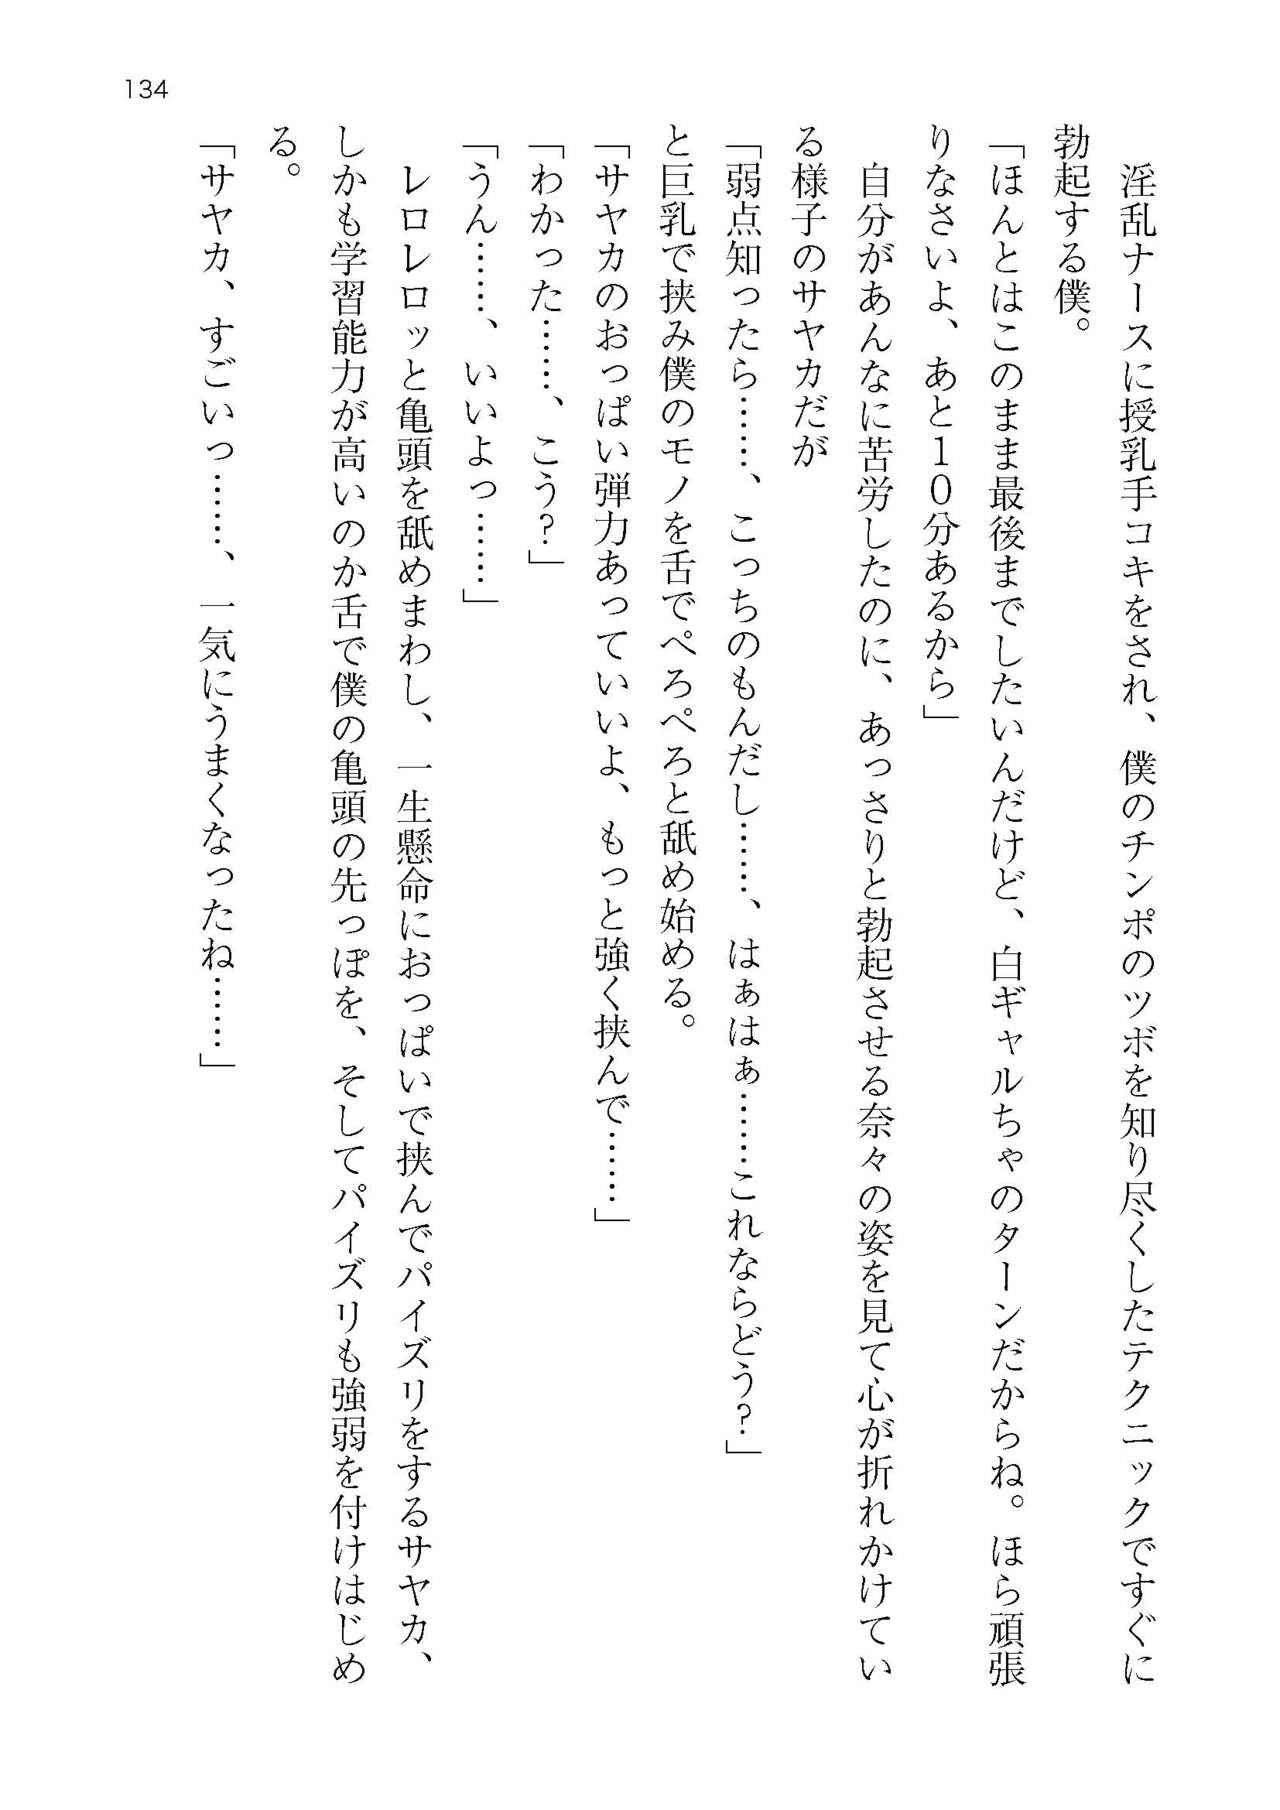 134
　淫乱ナースに授乳手コキをされ、僕のチンポのツボを知り尽くしたテクニックですぐに
勃起する僕。
「ほんとはこのまま最後までしたいんだけど、白ギャルちゃのターンだからね。ほら頑張
りなさいよ、あと１０分あるから」
　自分があんなに苦労したのに、あっさりと勃起させる奈々の姿を見て心が折れかけてい
る様子のサヤカだが
「弱点知ったら……、こっちのもんだし……、はぁはぁ……これならどう？」
と巨乳で挟み僕のモノを舌でぺろぺろと舐め始める。
「サヤカのおっぱい弾力あっていいよ、もっと強く挟んで……」
「わかった……、こう？」
「うん……、いいよっ……」
　レロレロッと亀頭を舐めまわし、一生懸命におっぱいで挟んでパイズリをするサヤカ、
しかも学習能力が高いのか舌で僕の亀頭の先っぽを、そしてパイズリも強弱を付けはじめ
る。
「サヤカ、すごいっ……、一気にうまくなったね……」